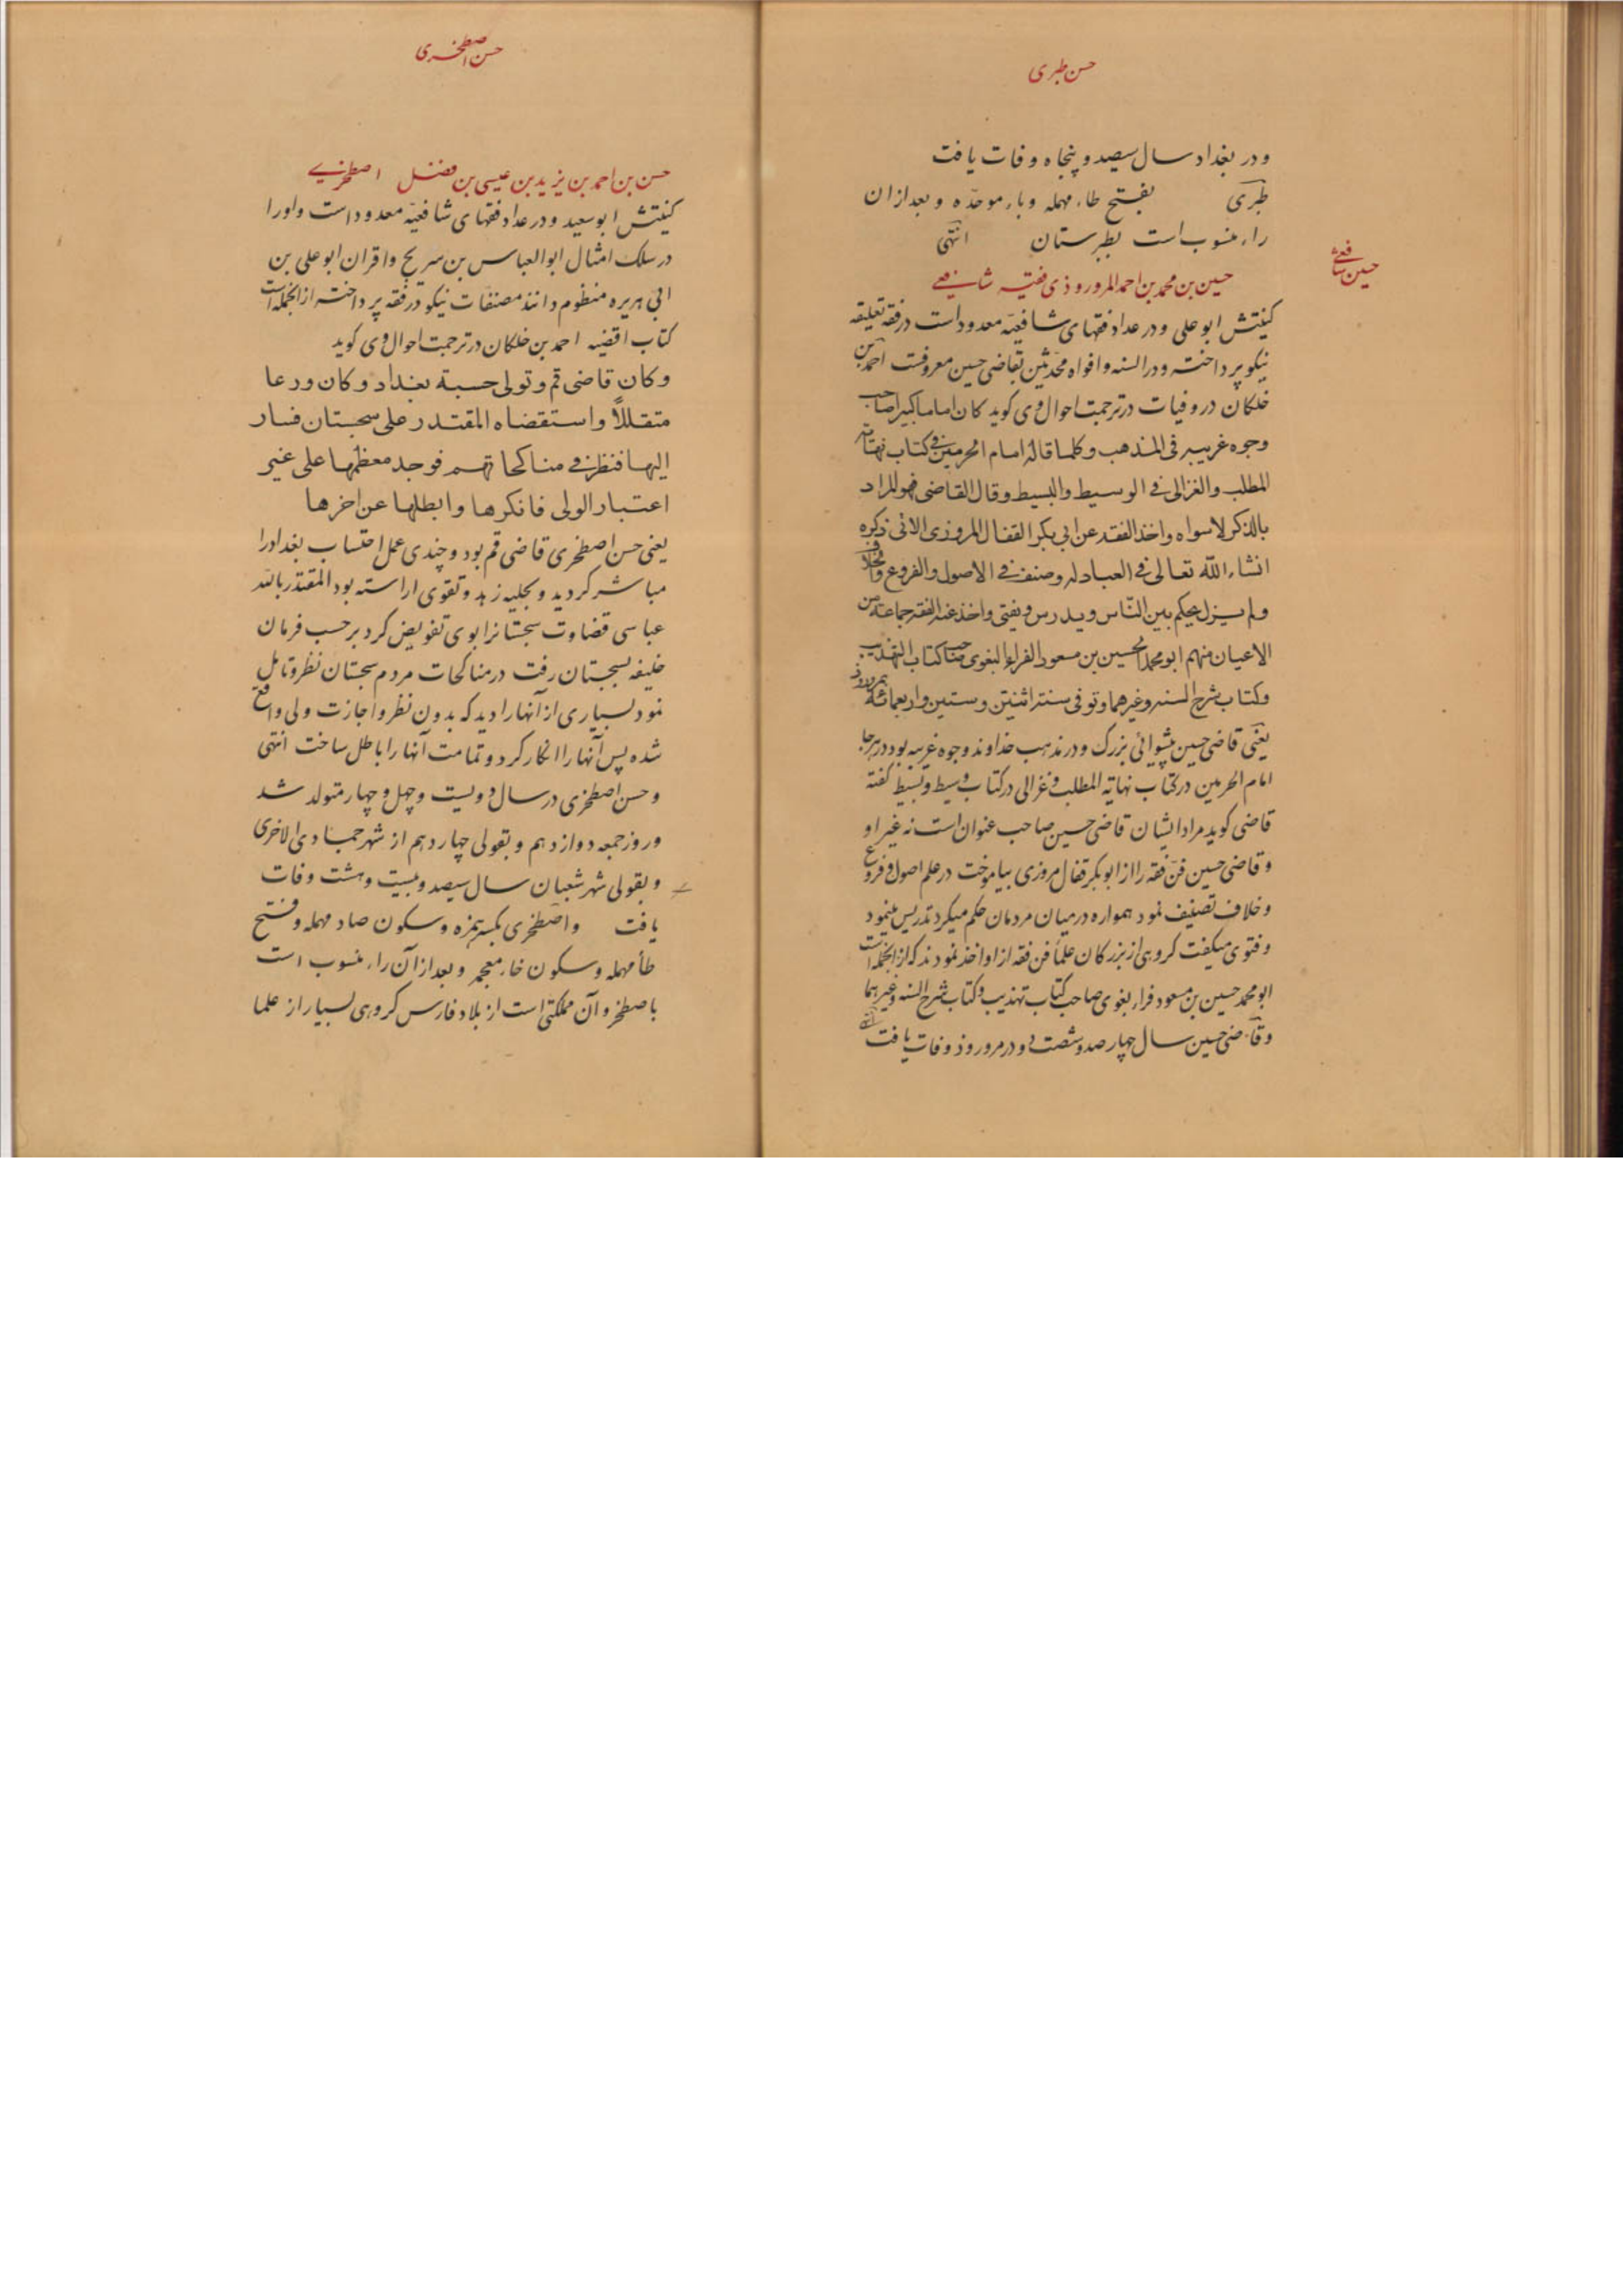 حسن طبری
ودر بغداد سال سیصد و پنجاه وفات یافت
طبری بفتح طاء مهمله وباء موحده وبعد ازان
راء منسوب است بطبرستان انتهی
حسین شافعی
حسین بن محمد بن احمد المروروذی فقیه شافعی
کنیتش ابو علی ودر عداد فقهای شافعیه معدود است در فقه تعلیقه
نیکو پرداخته ودر السنه وافواه محدثین بقاضی حسین معروفست احمد بن
خلکان در وفیات در ترجمت احوال وی کوید کان اماما کبیرا صاحب
وجوه غریبه فی المذهب وکلما قاله امام الحرمین فی کتاب نهایة
المطلب والغزالی فی الوسیط والبسیط وقال القاضی فهو المراد
بالذکر لا سواه واخذ الفقه عن ابی بکر القفال المروزی الاتی ذکره
انشاء الله تعالی فی العبادله وصنف فی الاصول والفروع والخلاف
ولم یزل یحکم بین الناس ویدرس ویفتی واخذ عنه الفقه جماعة من
الاعیان منهم ابو محمد الحسین بن مسعود الفراء البغوی صاحب کتاب التهذیب
وکتاب شرح السنه وغیرهما وتوفی سنة اثنتین وستین واربعمائة بمروروذ
یعنی قاضی حسین پیشوائی بزرک ودر مذهب خداوند وجوه غریبه بود در هرجا
امام الحرمین در کتاب نهایة المطلب وغزالی در کتاب وسیط وبسیط کفته
قاضی کوید مراد ایشان قاضی حسین صاحب عنوان است نه غیر او
وقاضی حسین فن فقه را از ابوبکر قفال مروزی بیاموخت در علم اصول وفروع
وخلاف تصنیف نمود همواره در میان مردمان حکم میکرد تدریس مینمود
وفتوی میکفت کروهی از بزرکان علما فن فقه از او اخذ نمودند که از انجمله است
ابو محمد حسین بن مسعود فراء بغوی صاحب کتاب تهذیب وکتاب شرح السنه وغیرهما
وقاضی حسین سال چهارصد وشصت ودو در مروروذ وفات یافت انتهی
حسن اصطخری
حسن بن احمد بن یزید بن عیسی بن فضل اصطخری
کنیتش ابو سعید ودر عداد فقهای شافعیه معدود است واورا
در سلک امثال ابو العباس بن سریج واقران ابو علی بن
ابی هریره منظوم دانند مصنفات نیکو در فقه پرداخته از انجمله است
کتاب اقضیه احمد بن خلکان در ترجمت احوال وی کوید
وکان قاضی قم وتولی حسبة بغداد وکان ورعا
متقللاً واستقضاه المقتدر علی سجستان فسار
الیها فنظر فی مناکحاتهم فوجد معظمها علی غیر
اعتبار الولی فانکرها وابطلها عن اخرها
یعنی حسن اصطخری قاضی قم بود وچندی عمل احتساب بغداد را
مباشر کردید وبحلیه زهد وتقوی اراسته بود المقتدر بالله
عباسی قضاوت سجستانرا بوی تفویض کرد بر حسب فرمان
خلیفه بسجستان رفت در مناکحات مردم سجستان نظر وتامل
نمود بسیاری از آنها را دید که بدون نظر واجازت ولی واقع
شده پس آنها را انکار کرد وتمامت آنها را باطل ساخت انتهی
وحسن اصطخری در سال دویست وچهل وچهار متولد شد
وروز جمعه دوازدهم وبقولی چهاردهم از شهر جمادی الاخری
وبقولی شهر شعبان سال سیصد وبیست وهشت وفات
یافت واصطخری بکسر همزه وسکون صاد مهمله وفتح
طاء مهمله وسکون خاء معجمه وبعد از آن راء منسوب است
باصطخر وآن مملکتی است از بلاد فارس کروهی بسیار از علما